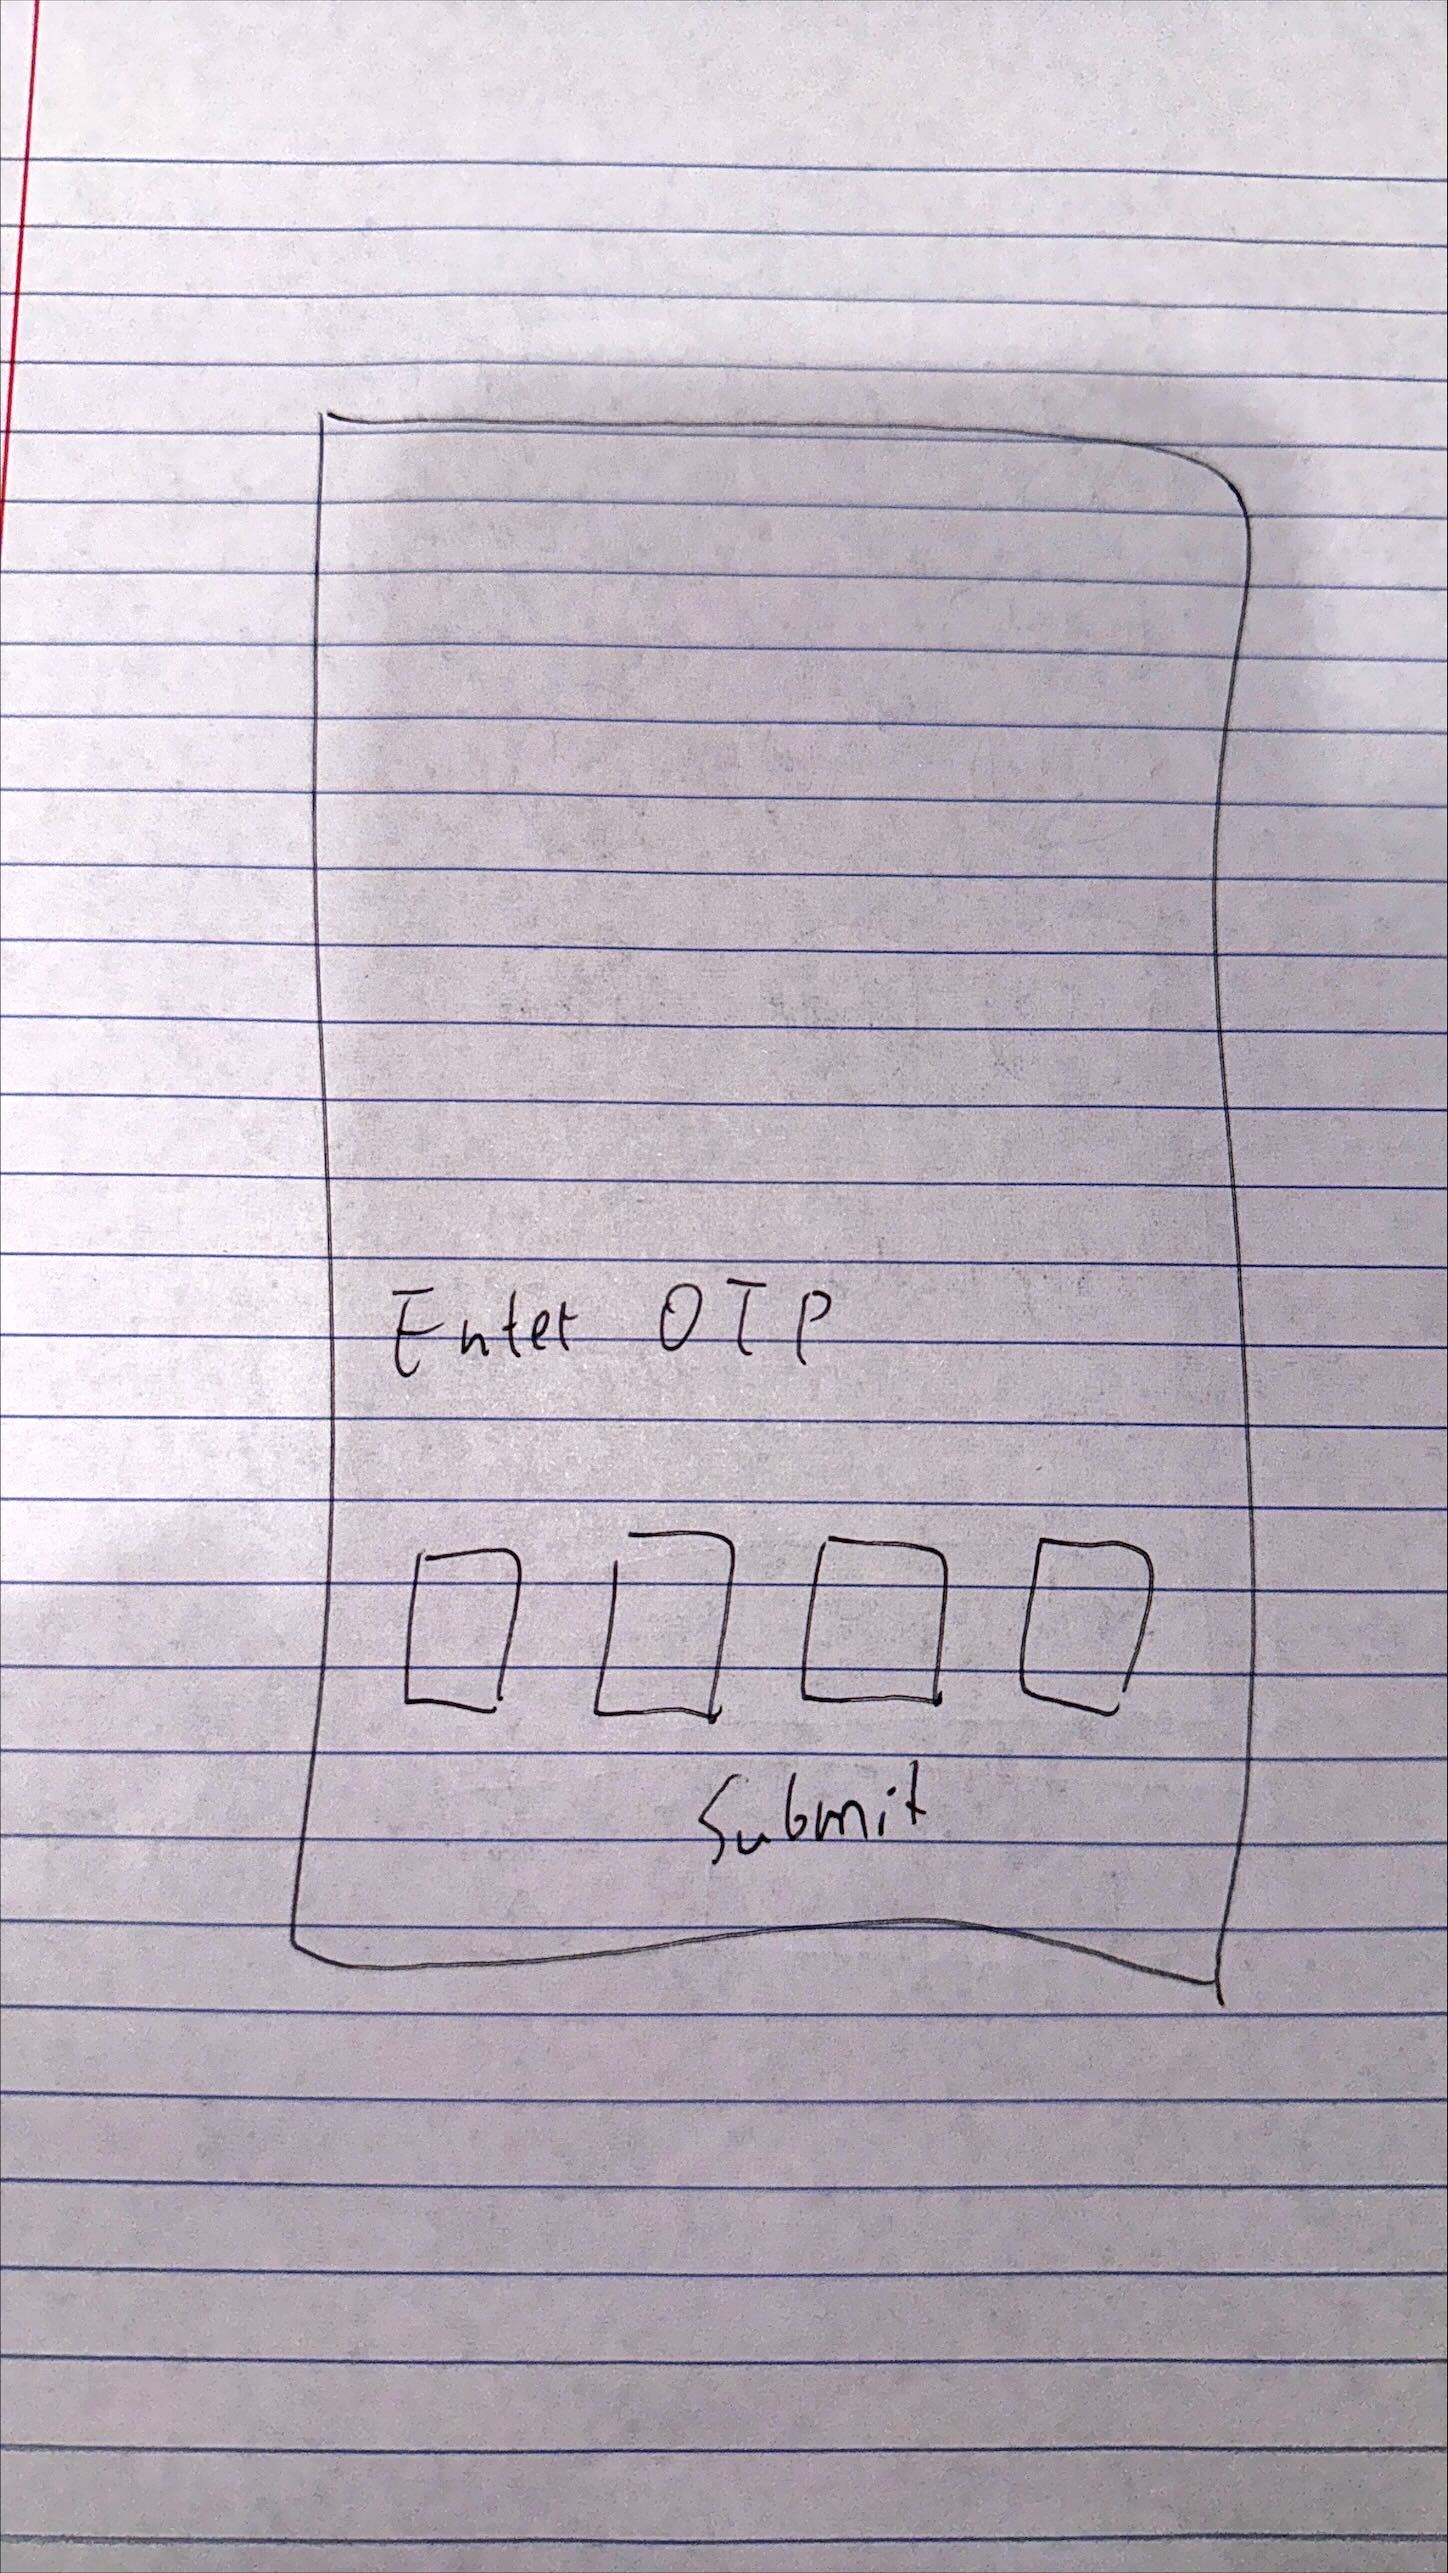 Enter OTP
Submit